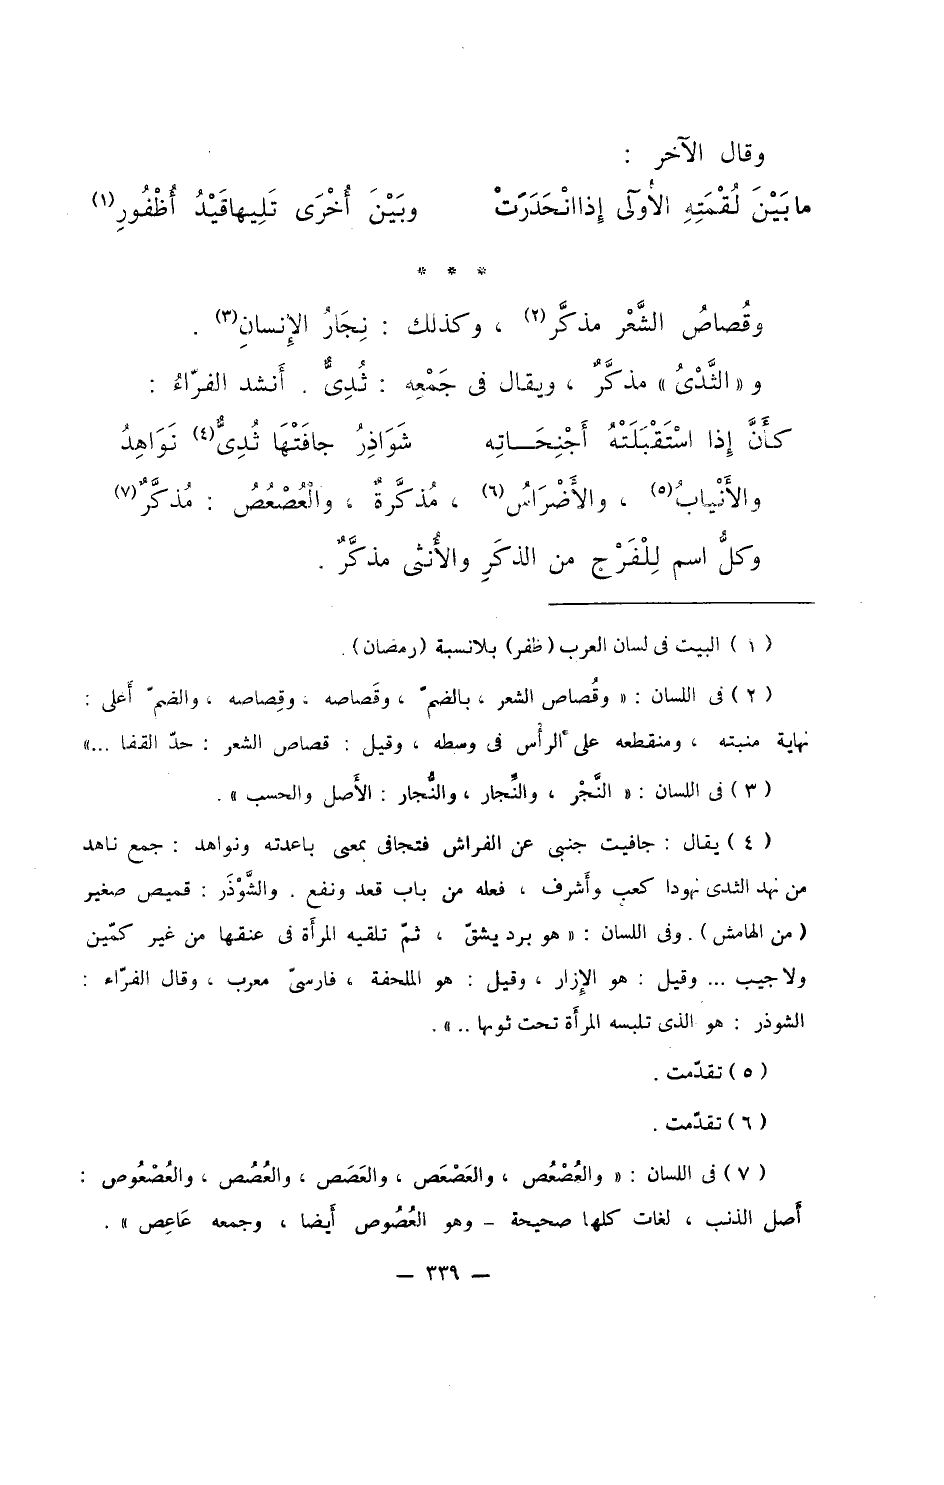 وقال الآخر :
مابَيْنَ لُقْمَتِهِ الأُولَى إِذاانْحَدَرَتْ وبَيْنَ أُخْرَى تَلِيهاقَيْدُ أُظْفُورِ(١)
* * *
وقُصاصُ الشَّعْر مذكَّر(٢) ، وكذلك : نِجَارُ الإِنسانِ(٣) .
و « الثَّدْىُ » مذكَّرٌ ، ويقال فى جَمْعِه : ثُدِىٌّ . أَنشد الفرّاءُ :
كأَنَّ إِذا اسْتَقْبَلَتْهُ أَجْنِحَــاتِه شَوَاذِرُ جافَتْهَا ثُدِىٌّ(٤) نَوَاهِدُ
والأَنْيابُ(٥) ، والأَضْرَاسُ(٦) ، مُذكَّرةٌ ، والْعُصْعُصُ : مُذكَّرٌ(٧)
وكلُّ اسم لِلْفَرْج من الذكَرِ والأُنثى مذكَّرٌ .
( ١ ) البيت فى لسان العرب (ظفر) بلانسبة (رمضان) .
( ٢ ) فى اللسان : « وقُصاص الشعر ، بالضمّ ، وقَصاصه ، وقِصاصه ، والضمّ أَعلى :
نهاية منبته ، ومنقطعه على الرأْس فى وسطه ، وقيل : قصاص الشعر : حدّ القفا ...»
( ٣ ) فى اللسان : « النَّجْر ، والنِّجار ، والنُّجار : الأَصل والحسب » .
( ٤ ) يقال : جافيت جنبى عن الفراش فتجافى بمعنى باعدته ونواهد : جمع ناهد
من نهد الثدى نهودا كعب وأَشرف ، فعله من باب قعد ونفع . والشَّوْذَر : قميص صغير
( من الهامش ) . وفى اللسان : « هو برد يشقّ ، ثمّ تلقيه المرأَة فى عنقها من غير كمّين
ولاجيب ... وقيل : هو الإِزار ، وقيل : هو الملحفة ، فارسىّ معرب ، وقال الفرّاء :
الشوذر : هو الذى تلبسه المرأَة تحت ثوبها .. » .
( ٥ ) تقدّمت .
( ٦ ) تقدّمت .
( ٧ ) فى اللسان : « والعُصْعُص ، والعَصْعَص ، والعَصَص ، والعُصُص ، والعُصْعُوص :
أَصل الذنب ، لغات كلها صحيحة – وهو العُصُوص أَيضا ، وجمعه عَاعِص » .
– ٣٣٩ –